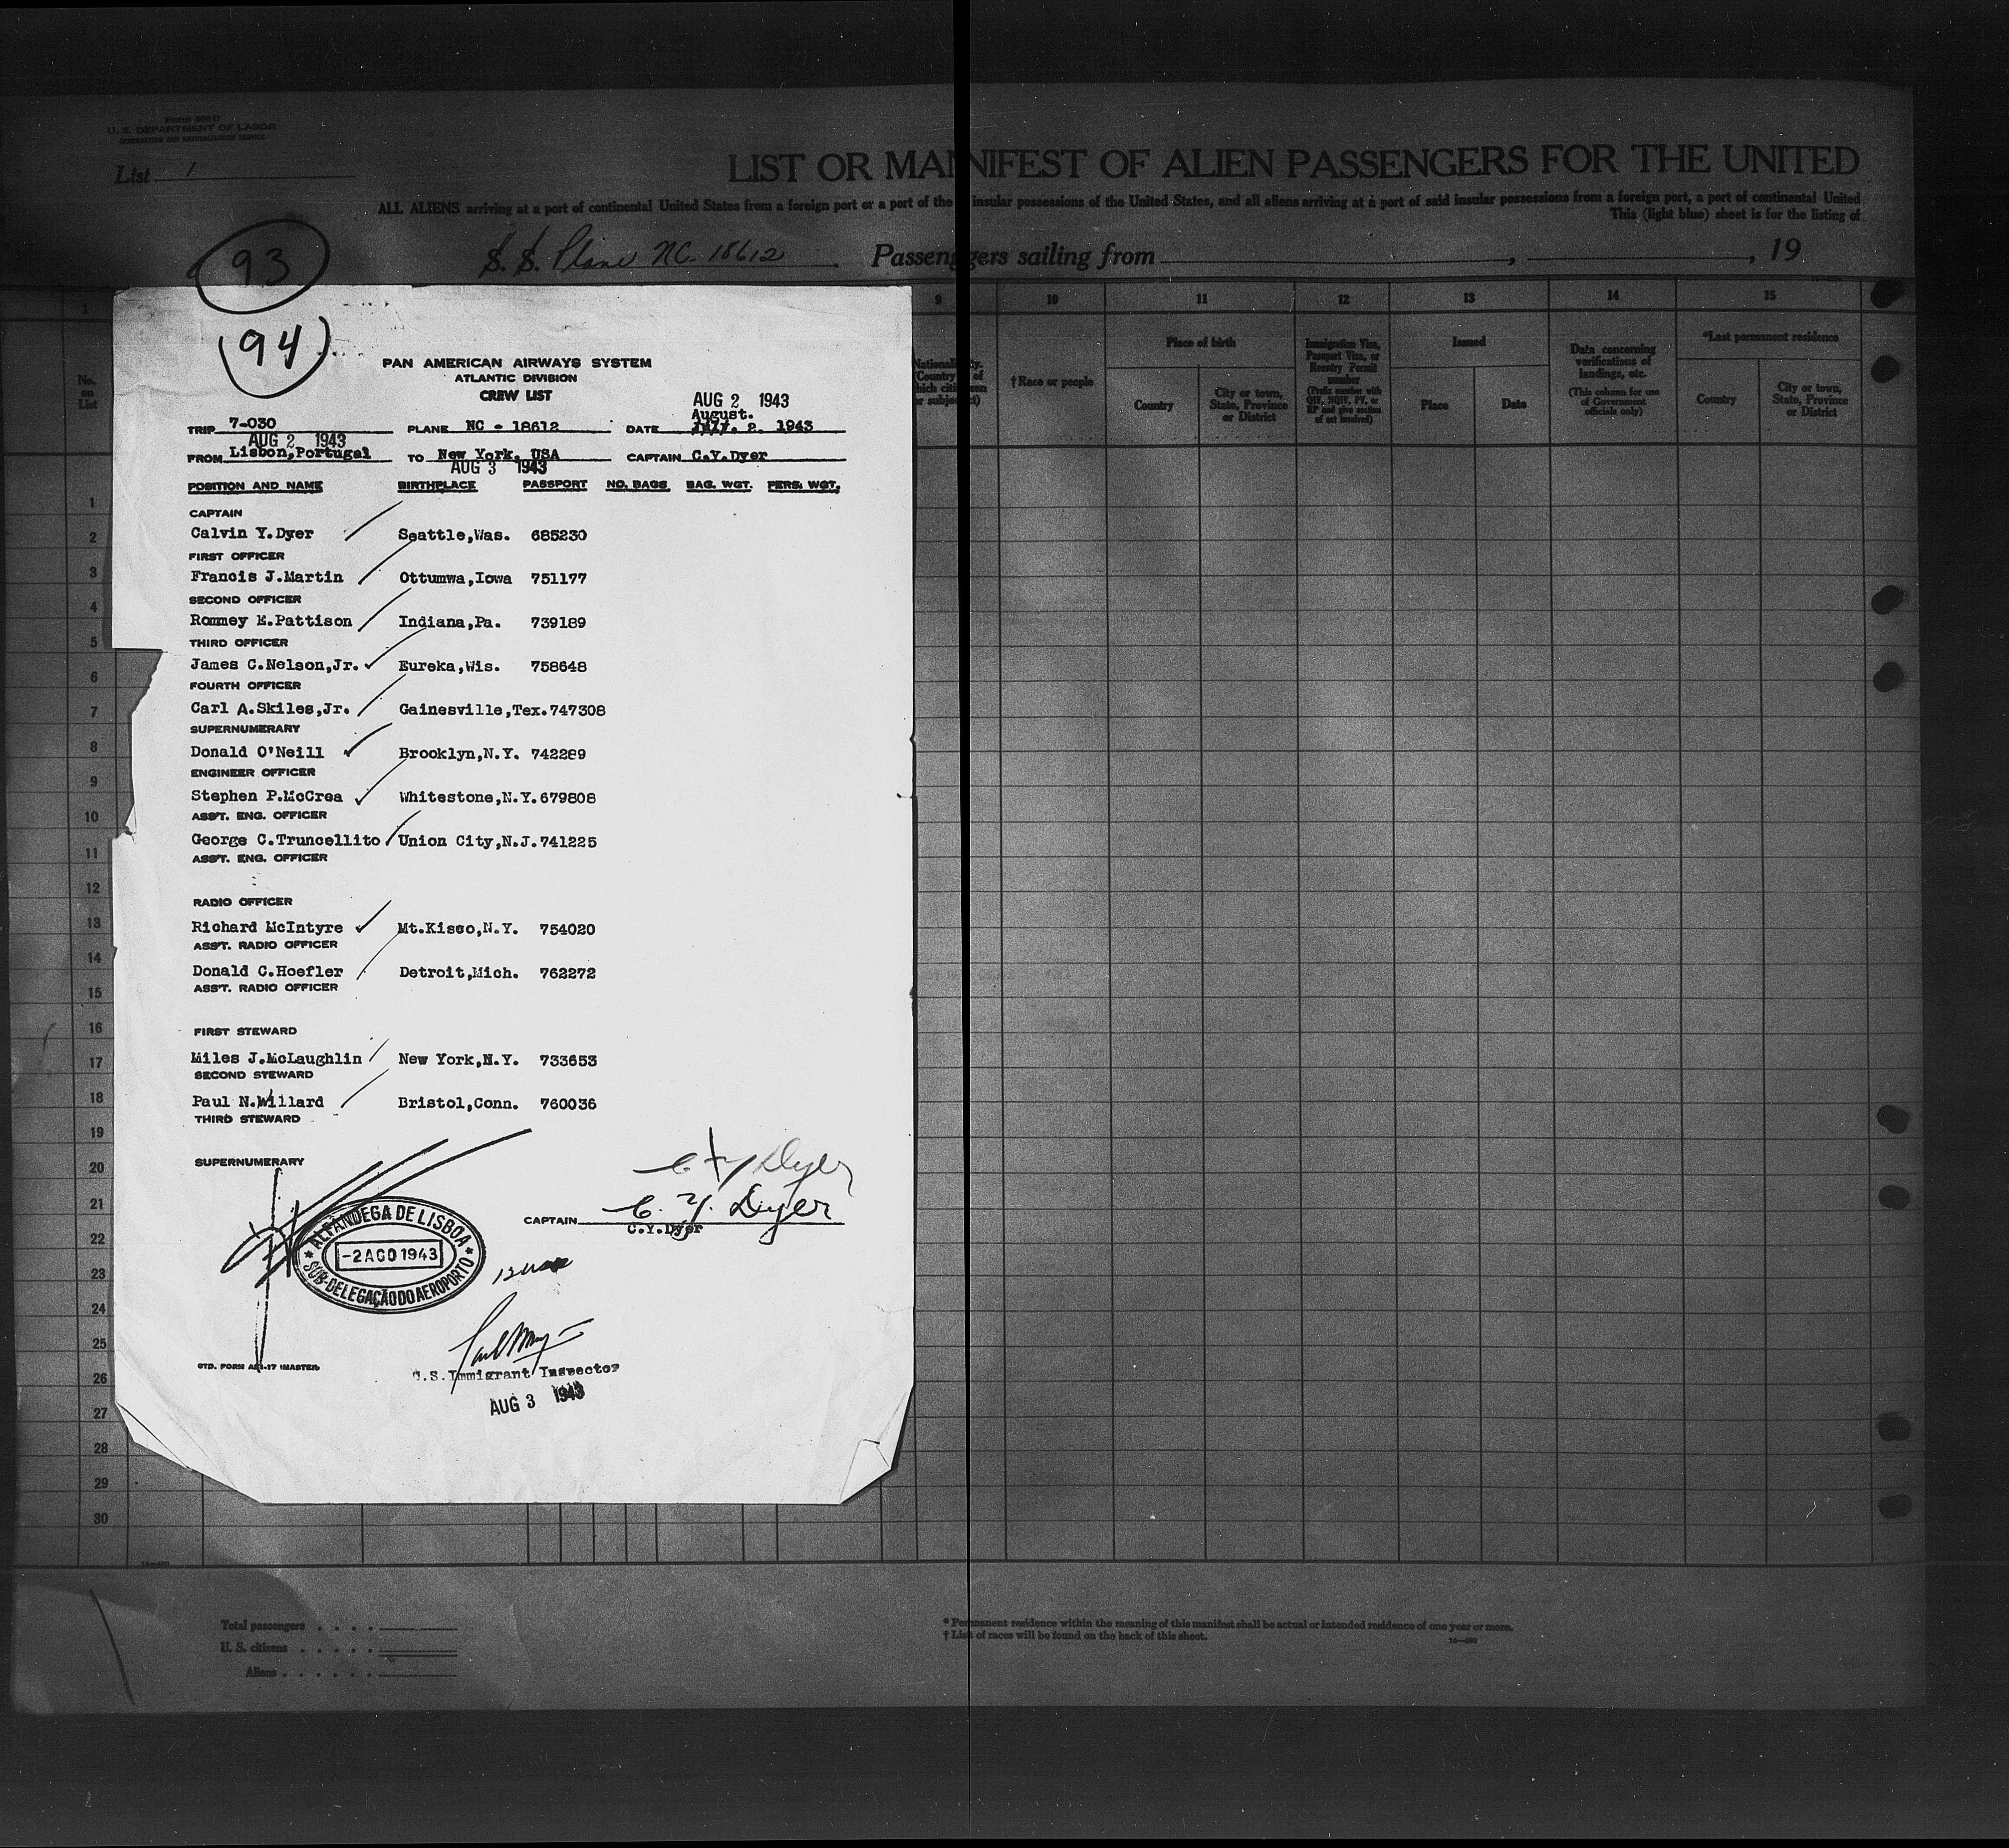 Form 500 C
U. S. DEPARTMENT OF LABOR
IMMIGRATION AND NATURALIZATION SERVICE
List 1
LIST OR MANIFEST OF ALIEN PASSENGERS FOR THE UNITED
ALL ALIENS arriving at a port of continental United States from a foreign port or a port of the insular possessions of the United States, and all aliens arriving at a port of said insular possessions from a foreign port, a port of continental United
This (light blue) sheet is for the listing of
93
S. S. Plane NC. 18612 Passengers sailing from , , 19
94
PAN AMERICAN AIRWAYS SYSTEM
ATLANTIC DIVISION
CREW LIST
AUG 2 1943
August.
TRIP 7-030 PLANE NC - 18612 DATE 2. 1943
AUG 2 1943
FROM Lisbon,Portugal TO New York. USA CAPTAIN C.Y.Dyer
AUG 3 1943
POSITION AND NAME BIRTHPLACE PASSPORT NO. BAGS BAG. WGT. PERS. WGT.
CAPTAIN
Calvin Y.Dyer Seattle,Was. 685230
FIRST OFFICER
Francis J.Martin Ottumwa,Iowa 751177
SECOND OFFICER
Rommey E.Pattison Indiana,Pa. 739189
THIRD OFFICER
James C.Nelson,Jr. Eureka,Wis. 758648
FOURTH OFFICER
Carl A.Skiles,Jr. Gainesville,Tex. 747308
SUPERNUMERARY
Donald O'Neill Brooklyn,N.Y. 742289
ENGINEER OFFICER
Stephen P.McCrea Whitestone,N.Y. 679808
ASS'T. ENG. OFFICER
George C.Truncellito Union City,N.J. 741225
ASS'T. ENG. OFFICER
RADIO OFFICER
Richard McIntyre Mt.Kisco,N.Y. 754020
ASS'T. RADIO OFFICER
Donald C.Hoefler Detroit,Mich. 762272
ASS'T. RADIO OFFICER
FIRST STEWARD
Miles J.McLaughlin New York,N.Y. 733653
SECOND STEWARD
Paul N.Willard Bristol,Conn. 760036
THIRD STEWARD
SUPERNUMERARY
C Y Dyer
CAPTAIN C. Y. Dyer
C.Y.Dyer
ALFÂNDEGA DE LISBOA
-2 AGO 1943
SUB-DELEGAÇÃO DO AEROPORTO
U.S. Immigrant Inspector
AUG 3 1943
STD. FORM (MASTER)
No. on List
1
2
3
4
5
6
7
8
9
10
11
12
13
14
15
16
17
18
19
20
21
22
23
24
25
26
27
28
29
30
1 9 10 11 12 13 14 15
†Race or people
Place of birth
Country
City or town, State, Province or District
Immigration Visa, Passport Visa, or Reentry Permit number
(Prefix number with QIV, NQIV, PV, or RP and give section of act involved)
Issued
Place
Date
Data concerning verifications of landings, etc.
(This column for use of Government officials only)
*Last permanent residence
Country
City or town, State, Province or District
Total passengers
U. S. citizens
Aliens
* Permanent residence within the meaning of this manifest shall be actual or intended residence of one year or more.
† List of races will be found on the back of this sheet.